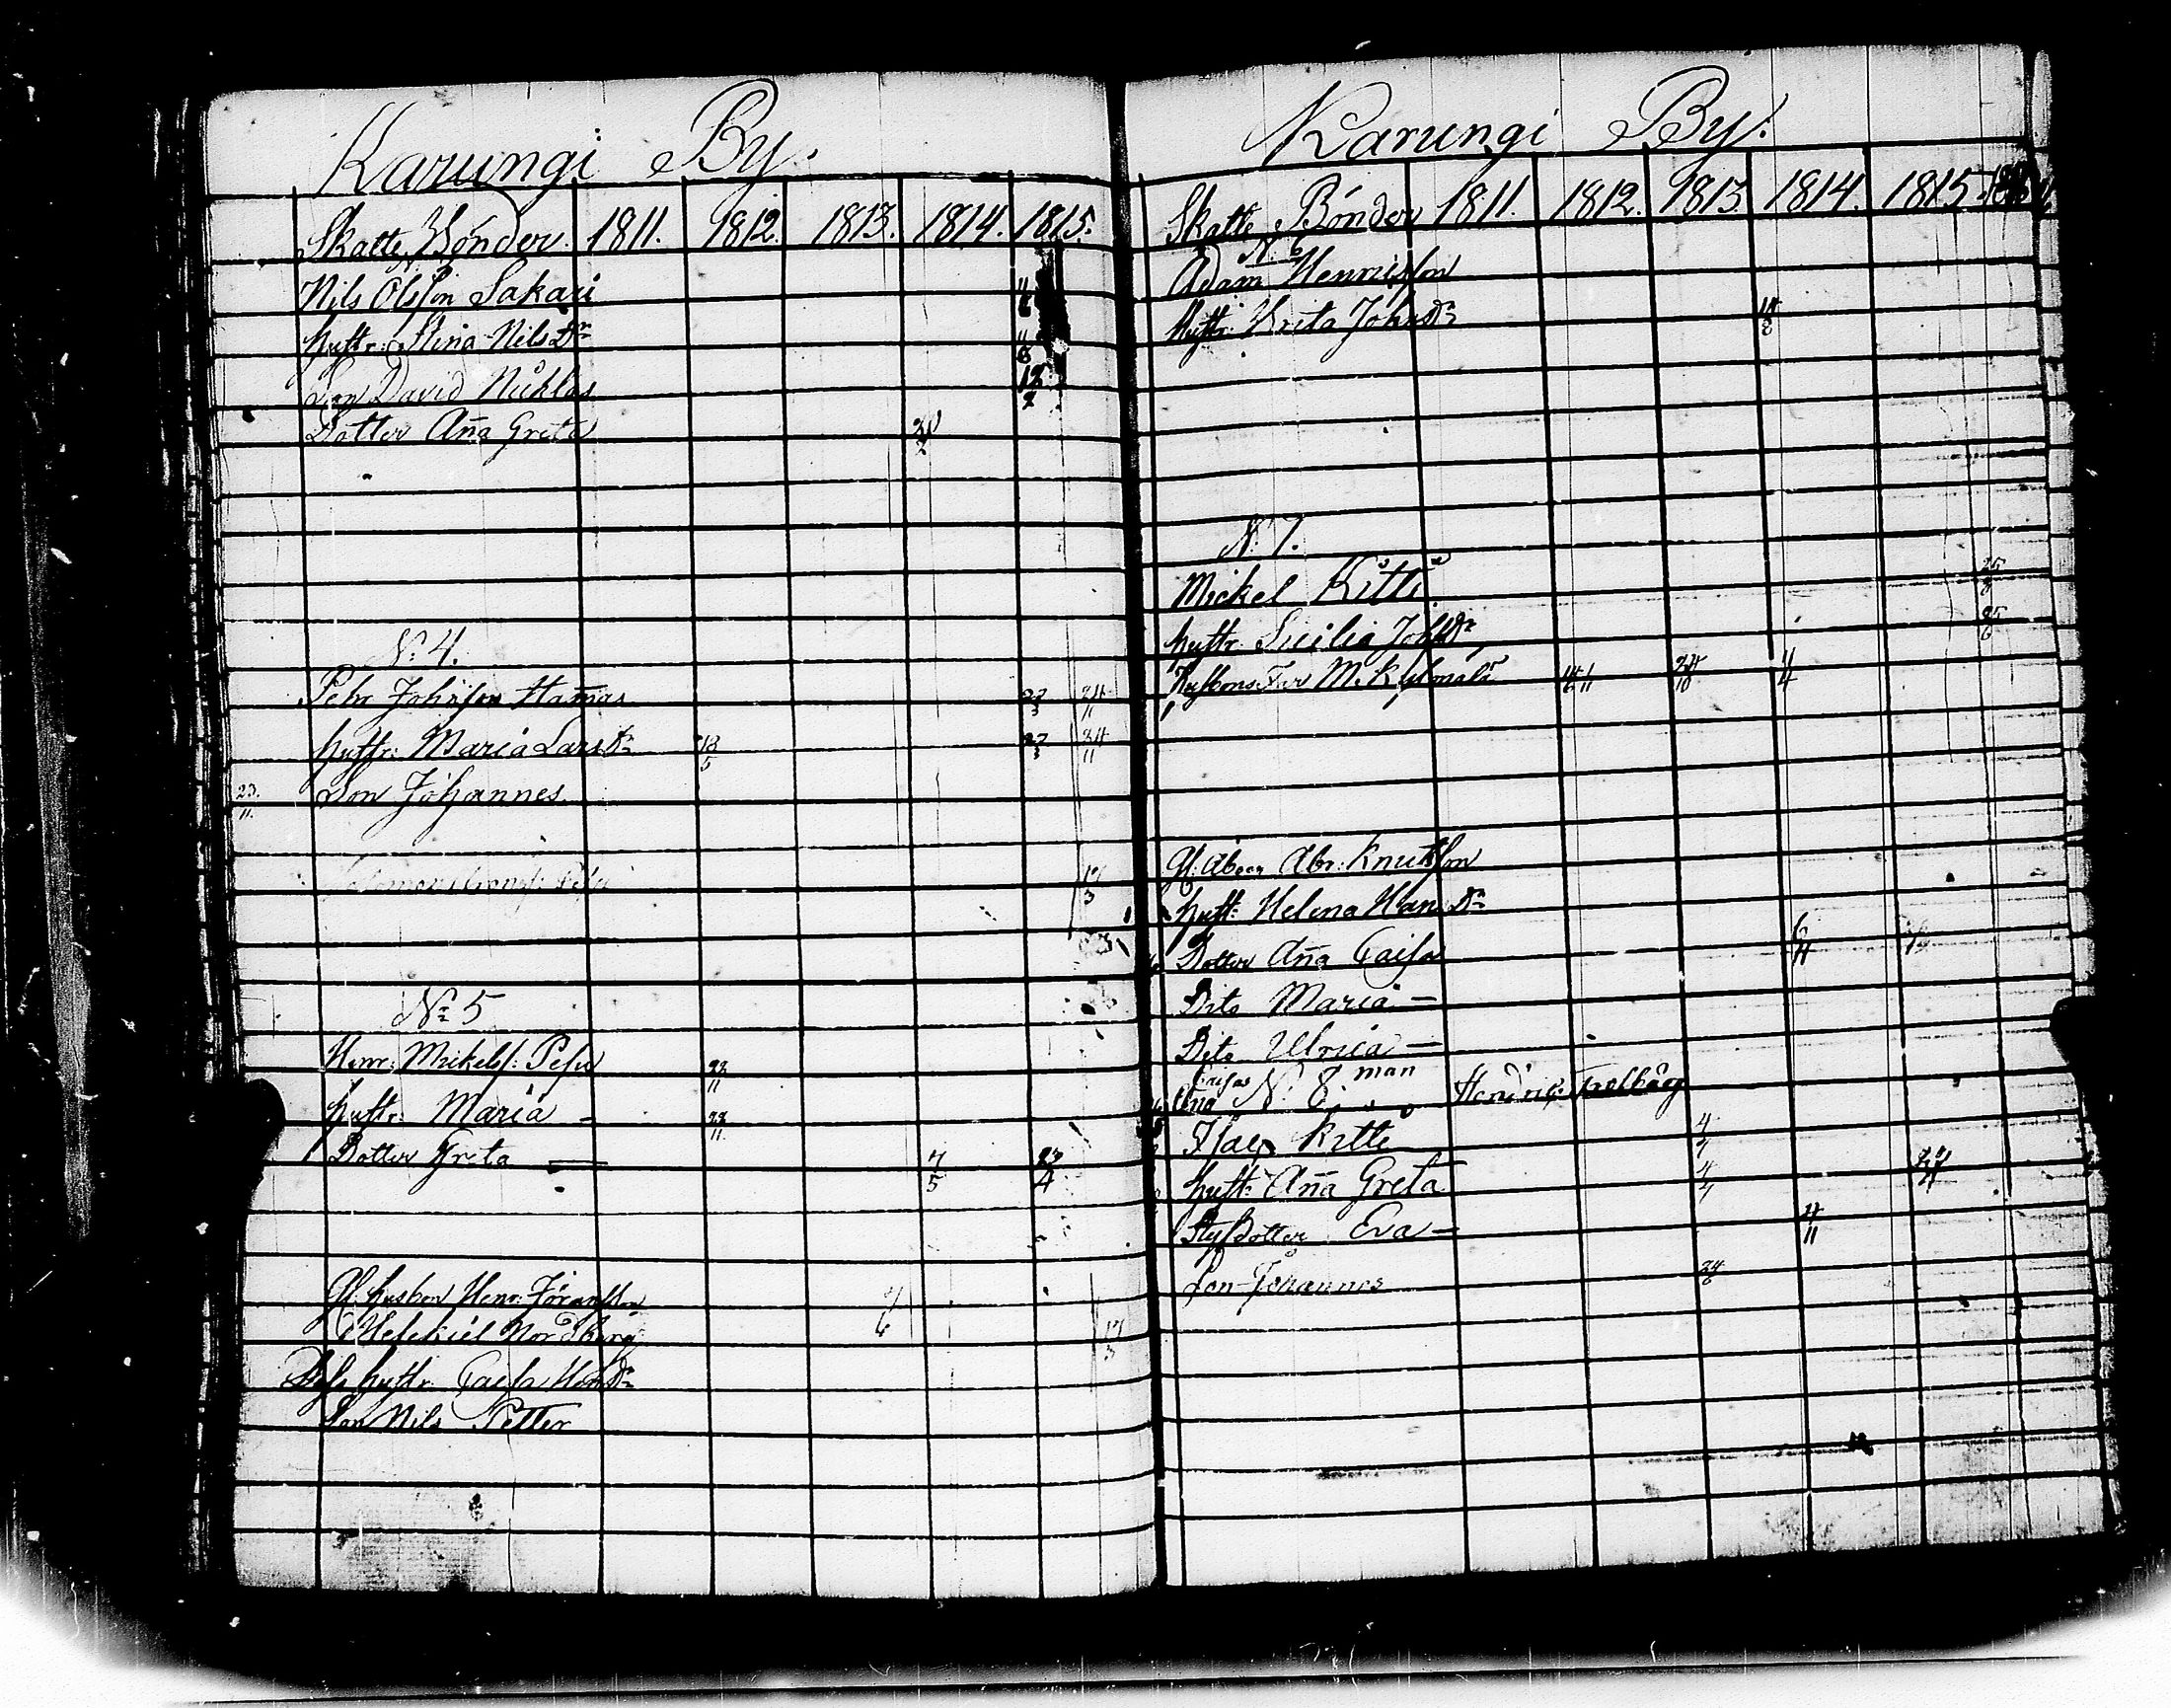 Karungi By.
Skatte Bönder. 1811. 1812. 1813. 1814. 1815.
Nils Olsson Sakari 11/6
hustr: Stina Nils Dr 11/6
Son David Nicklas
Dotter Aña Greta
N: 4.
Pehr Johnson Hamas 27/3 24/11
hustr: Maria Lars Dr 18/5 27/3 24/11
23/11. Son Johannes
17/3
Nr 5
Henr: Mickelss: Pesu 22/11
hustr: Maria — 22/11
Dotter Greta — 7/5
Gl. husbon Henr: Göransson
Hesekiel Nordberg 17/3
Dess hustr. Caisa Hen Dr
Son Nils Petter
Karungi By.
Skatte Bönder 1811. 1812. 1813. 1814. 1815.
N: 6
Adam Henriksson
hustr: Greta Johns Dr 18/8
N: 7.
Mickel Kitti 25/6
hustr. Sicilia Joh Dr 25/6
24/10 4/4
Gl: Åboen Abr: Knutsson
hustr: Helena Hans Dr
Dotter Aña Caisa
Dito Maria —
Dito Ulrica —
Caisas man Hendric
N: 8.
Isac Kitti 4/4
hustr: Aña Greta 4/4
Styfdotter Eva — 4/11
Son Johannes 24/6